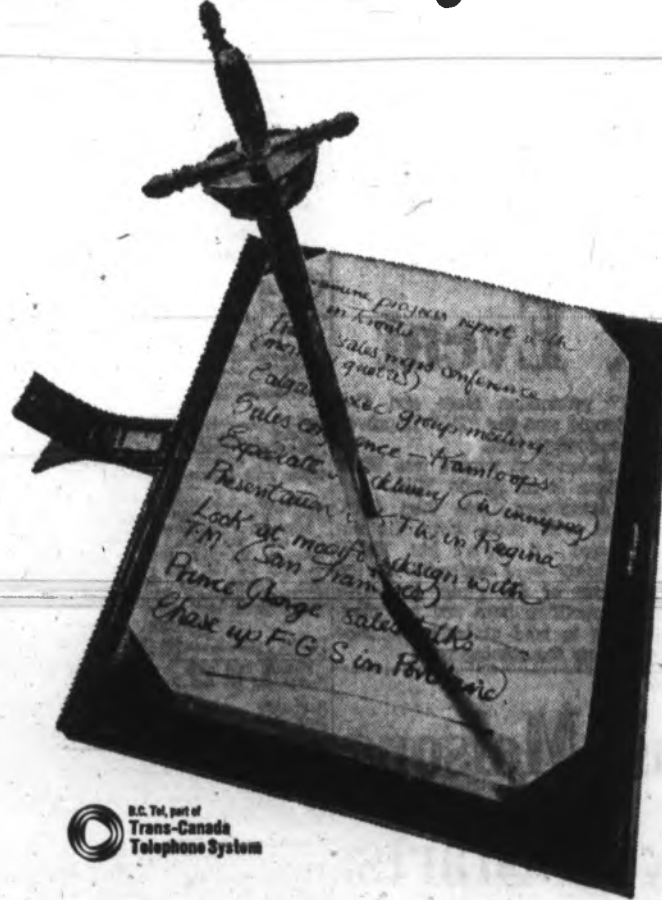 progress report with
in Toronto
sales mgrs conference
quotas)
group meeting
Sales conference – Kamloops
delivery (Winnipeg)
Presentation in Regina
Look at design with
T.M. (San Francisco)
Prince George sales talks
Chase up F G S in Portland.
B.C. Tel, part of
Trans-Canada
Telephone System